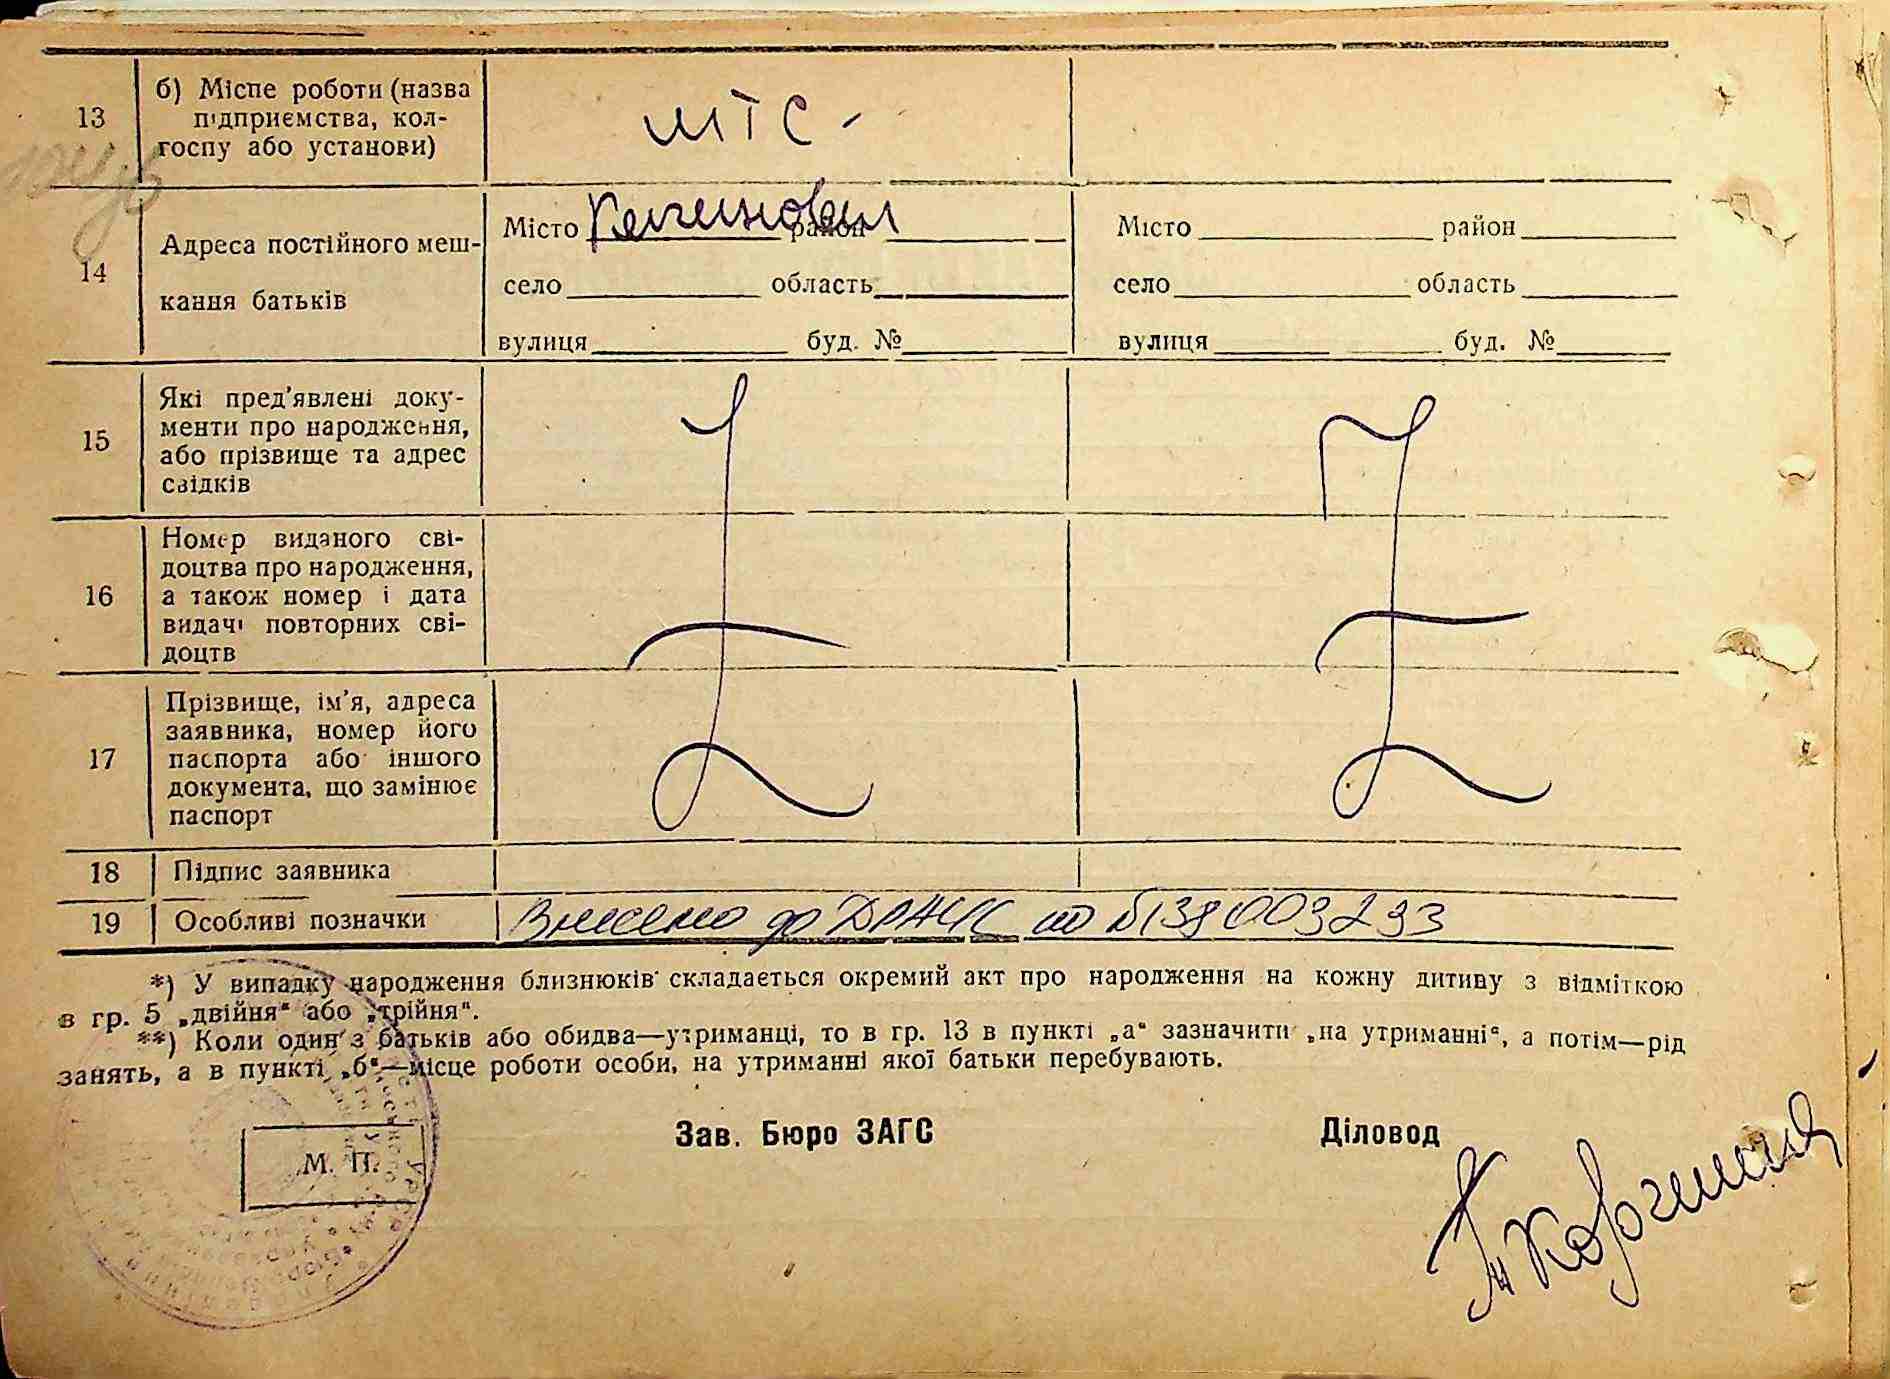 13
б) Місце роботи (назва
підприємства, кол-
госпу або установи)
МТС -
14
Адреса постійного меш-
кання батьків
Місто район
село область
вулиця буд. №
Місто район
село область
вулиця буд. №
15
Які пред'явлені доку-
менти про народження,
або прізвище та адрес
свідків
16
Номер виданого сві-
доцтва про народження,
а також номер і дата
видачі повторних сві-
доцтв
17
Прізвище, ім'я, адреса
заявника, номер його
паспорта або іншого
документа, що замінює
паспорт
18 Підпис заявника
19 Особливі позначки Внесено до ДРАЦС по №138003233
*) У випадку народження близнюків складається окремий акт про народження на кожну дитину з відміткою
в гр. 5 „двійня“ або „трійня“.
**) Коли один з батьків або обидва—утриманці, то в гр. 13 в пункті „а“ зазначити „на утриманні“, а потім—рід
занять, а в пункті „б“—місце роботи особи, на утриманні якої батьки перебувають.
Зав. Бюро ЗАГС Діловод
М. П.